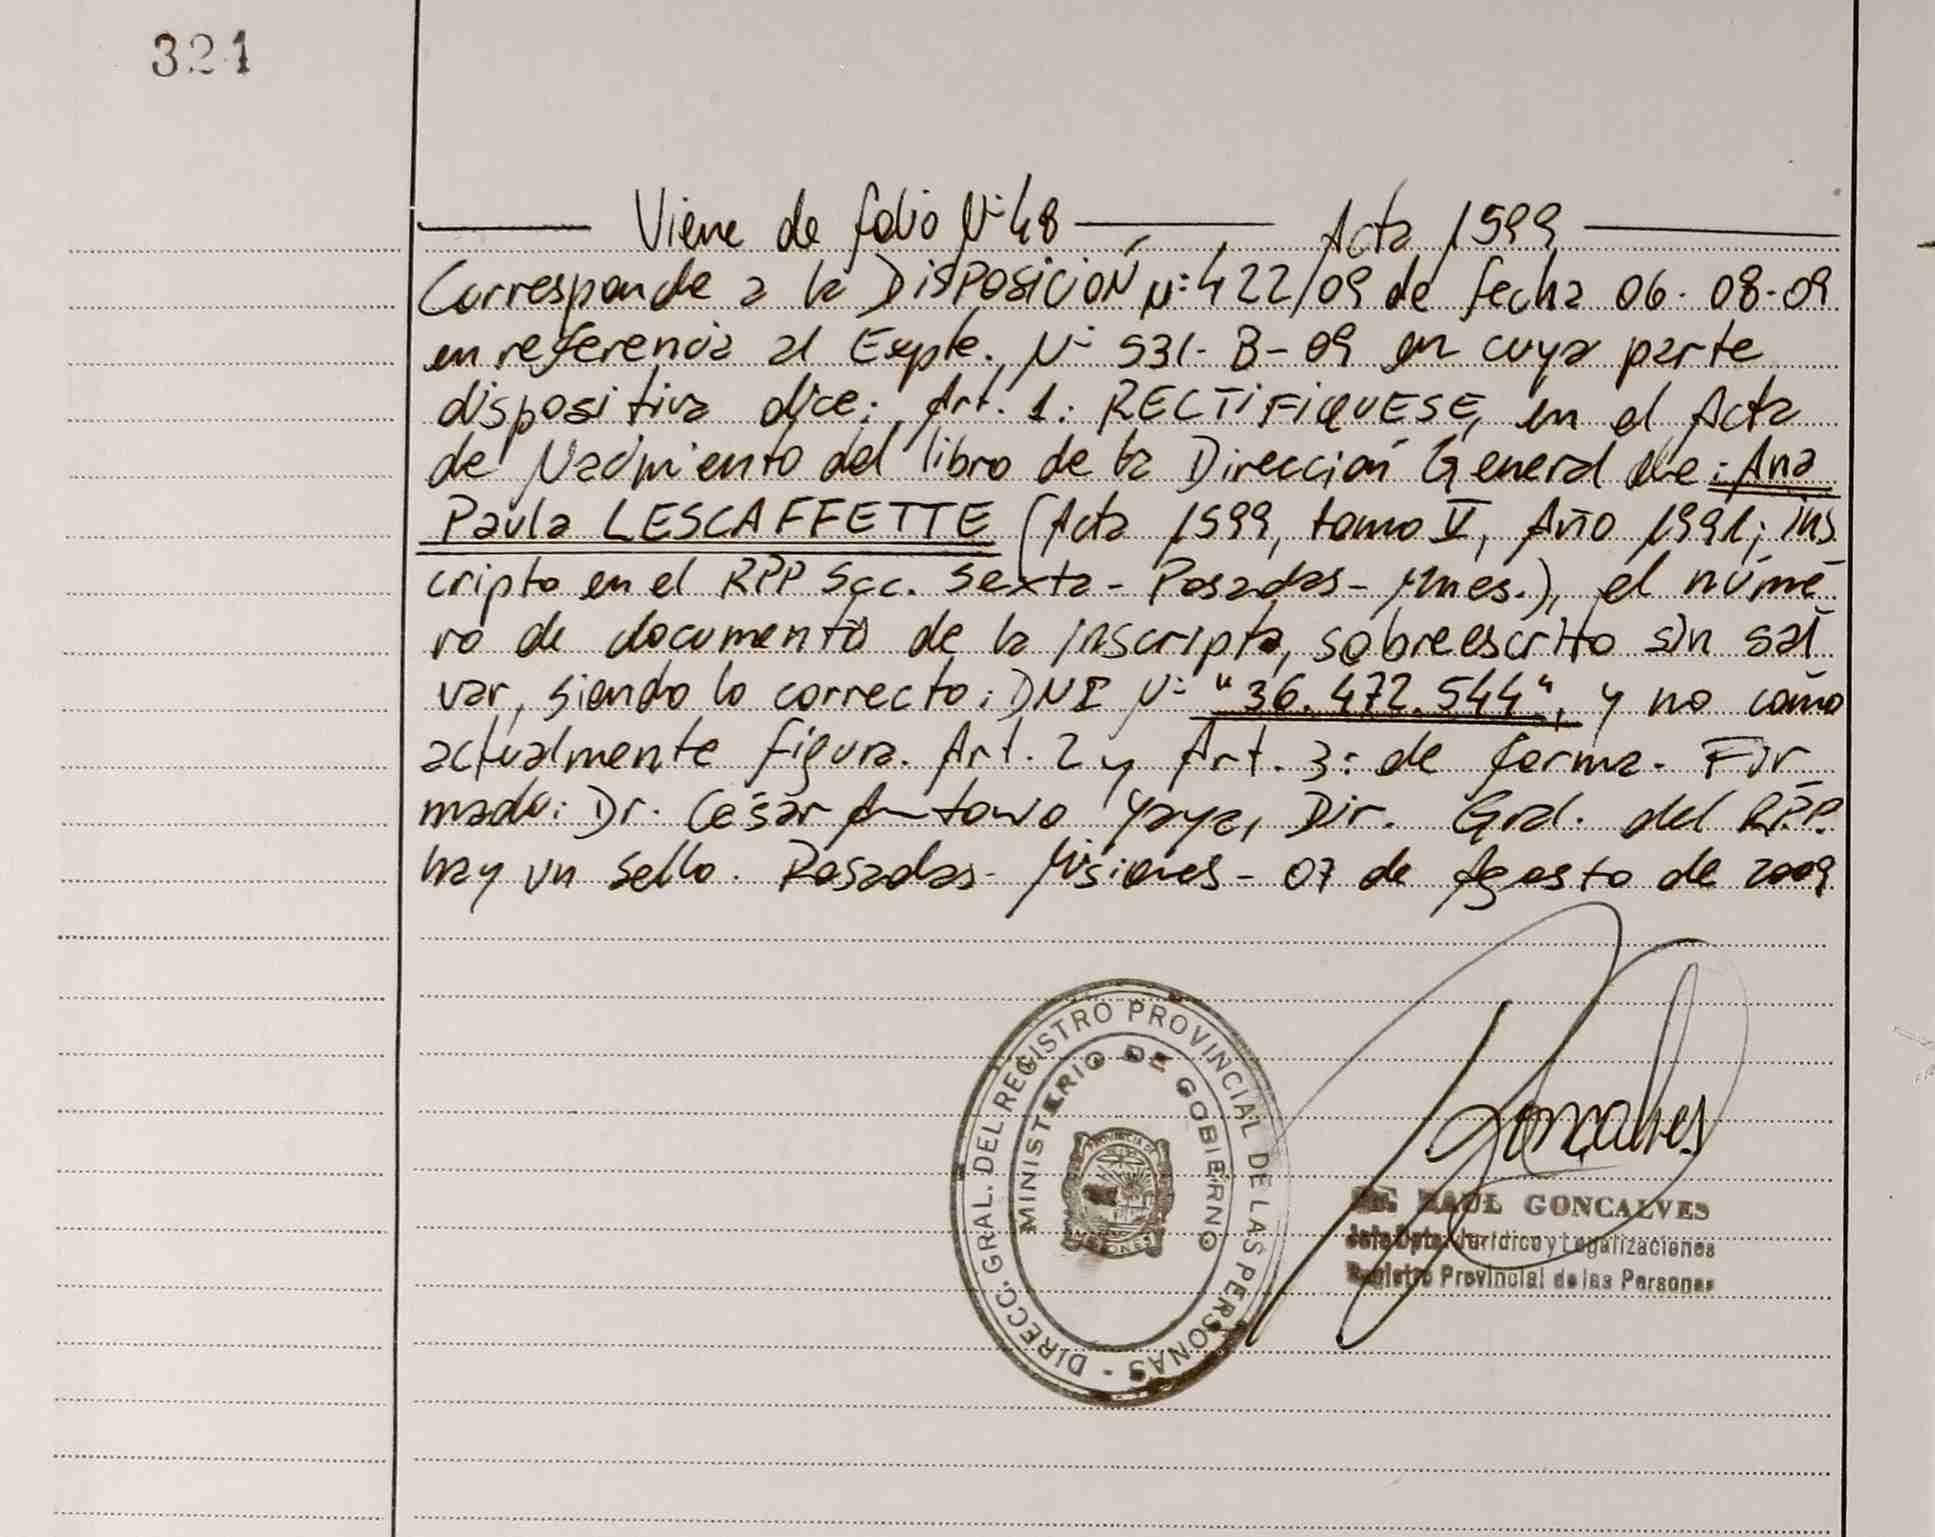 321
Viene de folio Nº 48 Acta 1599
Corresponde a la DISPOSICIÓN Nº 422/09 de fecha 06-08-09
en referencia al Expte. Nº 531-B-09 en cuya parte
dispositiva dice: Art. 1: RECTIFIQUESE, en el Acta
de Nacimiento del libro de la Dirección General de: Ana
Paula LESCAFFETTE (Acta 1599, tomo V, Año 1991; ins
cripto en el RPP Scc. Sexta - Posadas - Mnes.), el núme
ro de documento de la inscripta, sobreescrito sin sal
var, siendo lo correcto: DNI Nº "36.472.544", y no como
actualmente figura. Art. 2 y Art. 3: de forma. Fir
mado: Dr. César Antonio Yaya, Dir. Gral. del R.P.P.
hay un sello. Posadas - Misiones - 07 de Agosto de 2009
DIRECC. GRAL. DEL REGISTRO PROVINCIAL DE LAS PERSONAS -
MINISTERIO DE GOBIERNO
PROVINCIA DE
MISIONES
Goncalves
RAUL GONCALVES
Jefe Dpto. Jurídico y Legalizaciones
Registro Provincial de las Personas